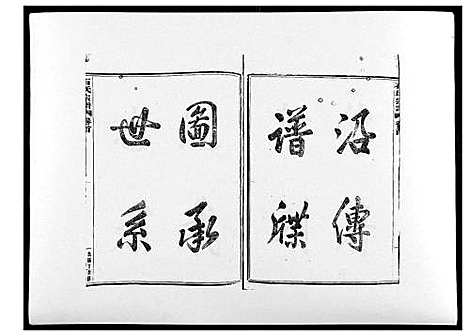 沿傳
譜牒
圖承
世系